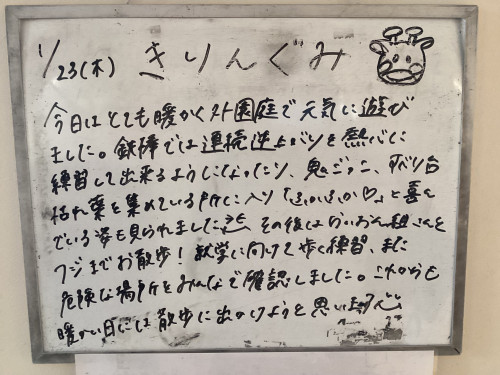 1/23(木) きりんぐみ
今日はとても暖かく 園庭で元気に遊び
ました。鉄棒では連続逆上がりを熱心に
練習して出来るようになったり、鬼ごっこ、すべり台
枯れ葉を集めている所に入り「ふかふか♡」と喜ん
でいる姿も見られました。その後はらいおん組さんと
フジまでお散歩!就学に向けて歩く練習、また
危険な場所をみんなで確認しました。これからも
暖かい日にはお散歩に出かけようと思います